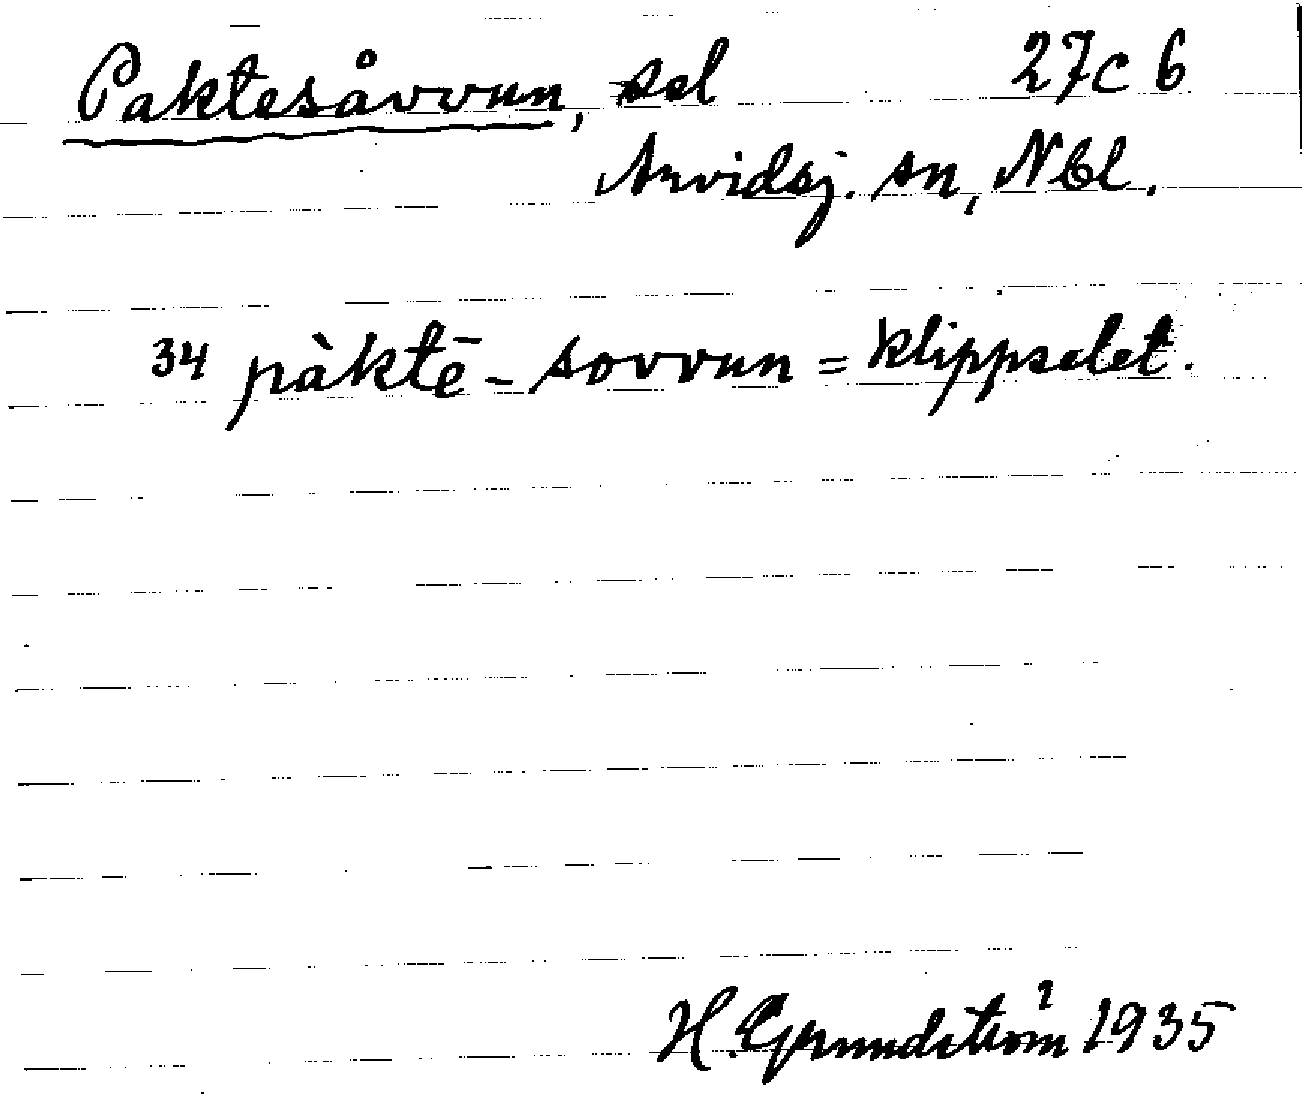 Paktesåvvun, sel 27c 6
Arvidsj. sn, Nbl.
34 pàktē-sovvun = klippselet.
H. Grundström 1935